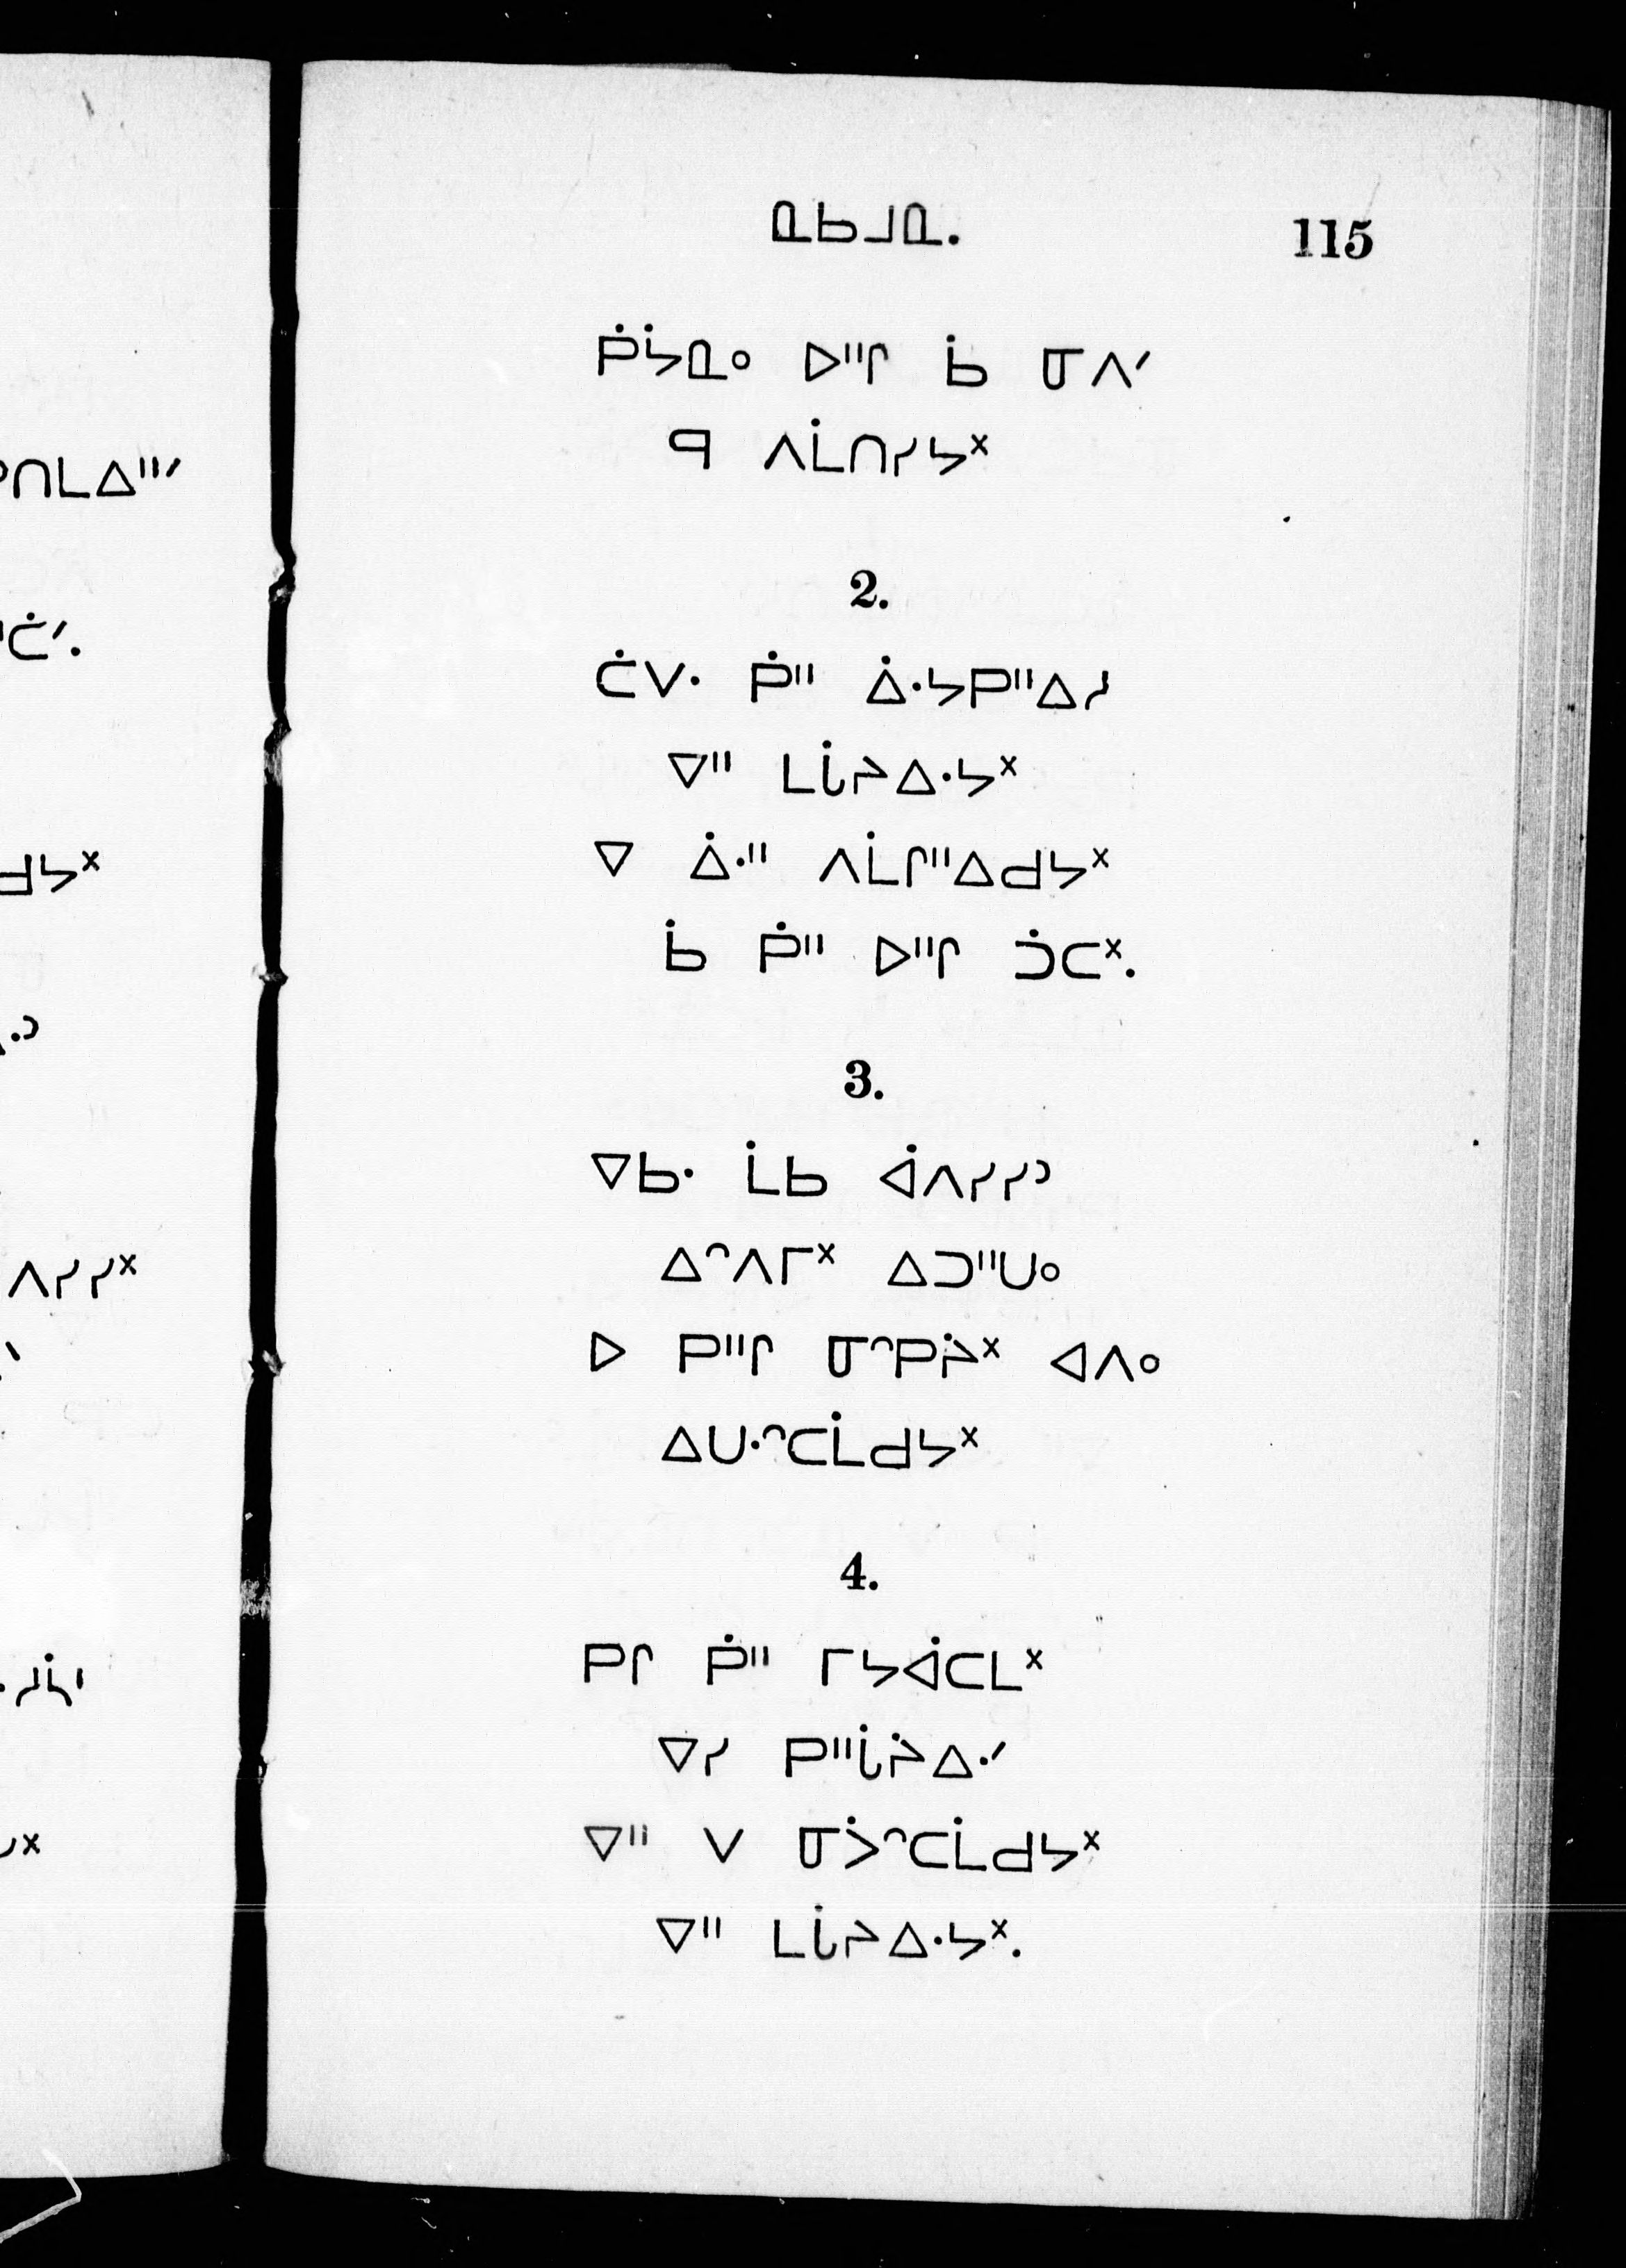 ᓇᑲᒧᓇ.
115
ᑮᔮᓇᐤ ᐅᐦᒋ ᑳ ᓂᐱᐟ
ᑫ ᐱᒫᑎᓯᔭᕽ
2.
ᑖᐯᐧ ᑮᐦ ᐄᐧᔭᑭᐦᐃᓱ
ᐁᐦ ᒪᒑᓰᐃᐧᔭᕽ
ᐁ ᐄᐧᐦ ᐱᒫᒋᐦᐃᑯᔭᕽ
ᑳ ᑮᐦ ᐅᐦᒋ ᑑᑕᕽ.
3.
ᐁᑲᐧ ᒫᑲ ᐋᐱᓯᓯᐣ
ᐃᐢᐱᒥᕽ ᐃᑐᐦᑌᐤ
ᐅ ᑭᐦᒋ ᓂᐢᑭᔩᕽ ᐊᐱᐤ
ᐃᑌᐧᐢᑕᒫᑯᔭᕽ
4.
ᑭᒋ ᑮᐦ ᒥᔭᐚᑕᒪᕽ
ᐁᓯ ᑭᐦᒑᔩᐃᐧᐟ
ᐁᐦ ᐯ ᓂᐹᐢᑕᒫᑯᔭᕽ
ᐁᐦ ᒪᒑᔨᐃᐧᔭᕽ.
ᐱᓯᓯᕽ